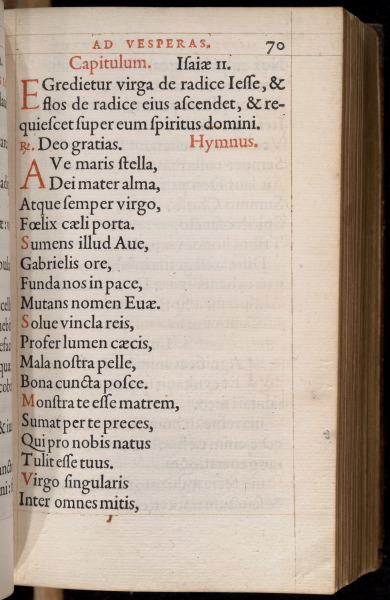 AD VESPERAS. 70
Capitulum. Isaiæ 11.
EGredietur virga de radice Iesse, &
flos de radice eius ascendet, & re-
quiescet super eum spiritus domini.
℟. Deo gratias. Hymnus.
AVe maris stella,
Dei mater alma,
Atque semper virgo,
Fœlix cæli porta.
Sumens illud Aue,
Gabrielis ore,
Funda nos in pace,
Mutans nomen Euæ.
Solue vincla reis,
Profer lumen cæcis,
Mala nostra pelle,
Bona cuncta posce.
Monstra te esse matrem,
Sumat per te preces,
Qui pro nobis natus
Tulit esse tuus.
Virgo singularis
Inter omnes mitis,